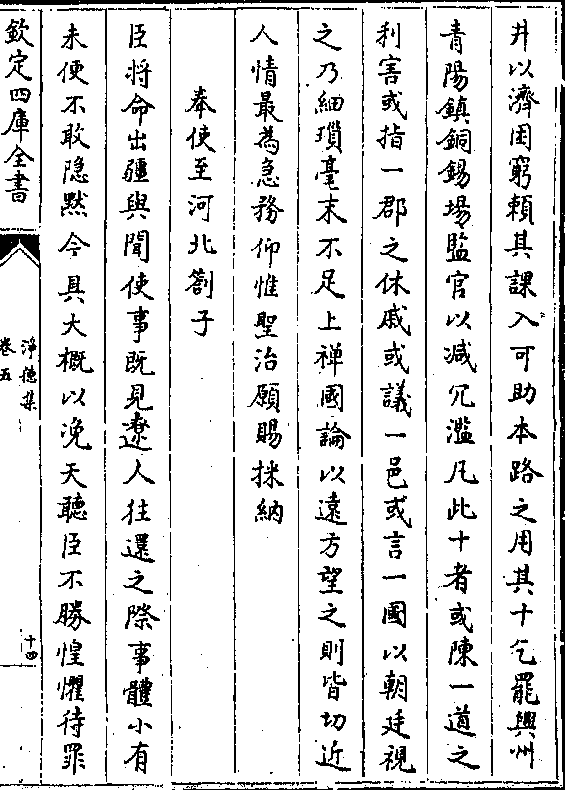 井以濟困窮頼其課入可助本路之用其十乞罷興州
青陽鎮銅錫場監官以减冗濫凡此十者或陳一道之
利害或指一郡之休戚或議一邑或言一國以朝廷視
之乃細瑣毫末不足上裨國論以遠方望之則皆切近
人情最為急務仰惟聖治願賜採納
奉使至河北劄子
臣将命出疆與聞使事既見遼人往還之際事體小有
未便不敢隐黙今具大概以浼天聽臣不勝惶懼待罪
欽定四庫全書
淨德集
卷五
十四